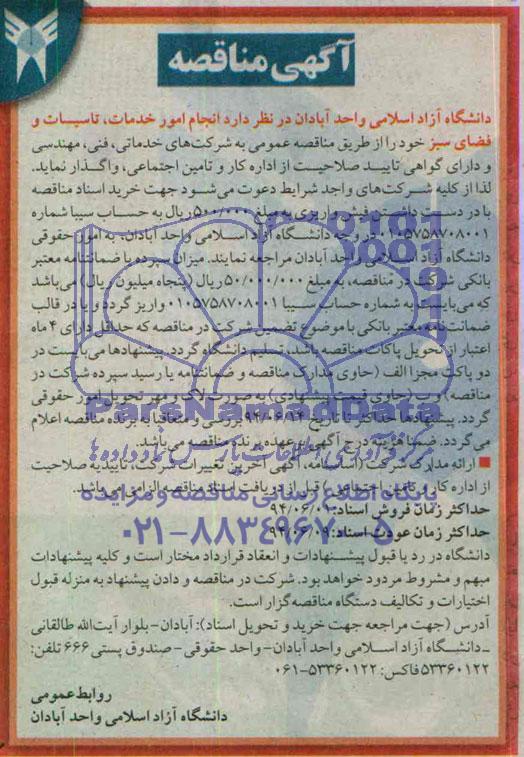 آگهی مناقصه
دانشگاه آزاد اسلامی واحد آبادان در نظر دارد انجام امور خدمات، تاسیسات و
فضای سبز خود را از طریق مناقصه عمومی به شرکت‌های خدماتی، فنی، مهندسی
و دارای گواهی تایید صلاحیت از اداره کار و تامین اجتماعی، واگذار نماید.
لذا از کلیه شرکت‌های واجد شرایط دعوت می‌شود جهت خرید اسناد مناقصه
با در دست داشتن فیش واریزی به مبلغ ۵۰۰/۰۰۰ ریال به حساب سیبا شماره
۰۱۰۵۷۵۸۷۰۸۰۰۱ در وجه دانشگاه آزاد اسلامی واحد آبادان، به امور حقوقی
دانشگاه آزاد اسلامی واحد آبادان مراجعه نمایند. میزان سپرده یا ضمانتنامه معتبر
بانکی شرکت در مناقصه، به مبلغ ۵۰/۰۰۰/۰۰۰ ریال (پنجاه میلیون ریال) می‌باشد
که می‌بایست به شماره حساب سیبا ۰۱۰۵۷۵۸۷۰۸۰۰۱ واریز گردد و یا در قالب
ضمانت‌نامه معتبر بانکی با موضوع تضمین شرکت در مناقصه که حداقل دارای ۴ ماه
اعتبار از تحویل پاکات مناقصه باشد، تسلیم دانشگاه گردد. پیشنهادها می‌بایست در
دو پاکت مجزا الف (حاوی مدارک مناقصه و ضمانتنامه یا رسید سپرده شرکت در
مناقصه) و ب (حاوی قیمت پیشنهادی) به صورت لاک و مهر تحویل امور حقوقی
گردد. پیشنهادها حداکثر تا تاریخ بررسی و متعاقبا به برنده مناقصه اعلام
می‌گردد. ضمنا هزینه درج آگهی بر عهده برنده مناقصه می‌باشد.
■ ارائه مدارک شرکت (اساسنامه، آگهی آخرین تغییرات شرکت، تاییدیه صلاحیت
از اداره کار و تامین اجتماعی) قبل از دریافت اسناد مناقصه الزامی می‌باشد.
حداکثر زمان فروش اسناد: ۹۴/۰۶/۰۲
حداکثر زمان عودت اسناد: ۹۴/۰۶/۰۹
دانشگاه در رد یا قبول پیشنهادات و انعقاد قرارداد مختار است و کلیه پیشنهادات
مبهم و مشروط مردود خواهد بود. شرکت در مناقصه و دادن پیشنهاد به منزله قبول
اختیارات و تکالیف دستگاه مناقصه‌گزار است.
آدرس (جهت مراجعه جهت خرید و تحویل اسناد): آبادان - بلوار آیت‌الله طالقانی
- دانشگاه آزاد اسلامی واحد آبادان - واحد حقوقی - صندوق پستی ۶۶۶ تلفن:
۵۳۳۶۰۱۲۲ فاکس: ۵۳۳۶۰۱۲۲-۰۶۱
روابط عمومی
دانشگاه آزاد اسلامی واحد آبادان
ParsNamadData
مرکز فرآوری اطلاعات پارس نماد داده‌ها
پایگاه اطلاع رسانی مناقصه و مزایده
۰۲۱-۸۸۳۴۹۶۷۰-۵